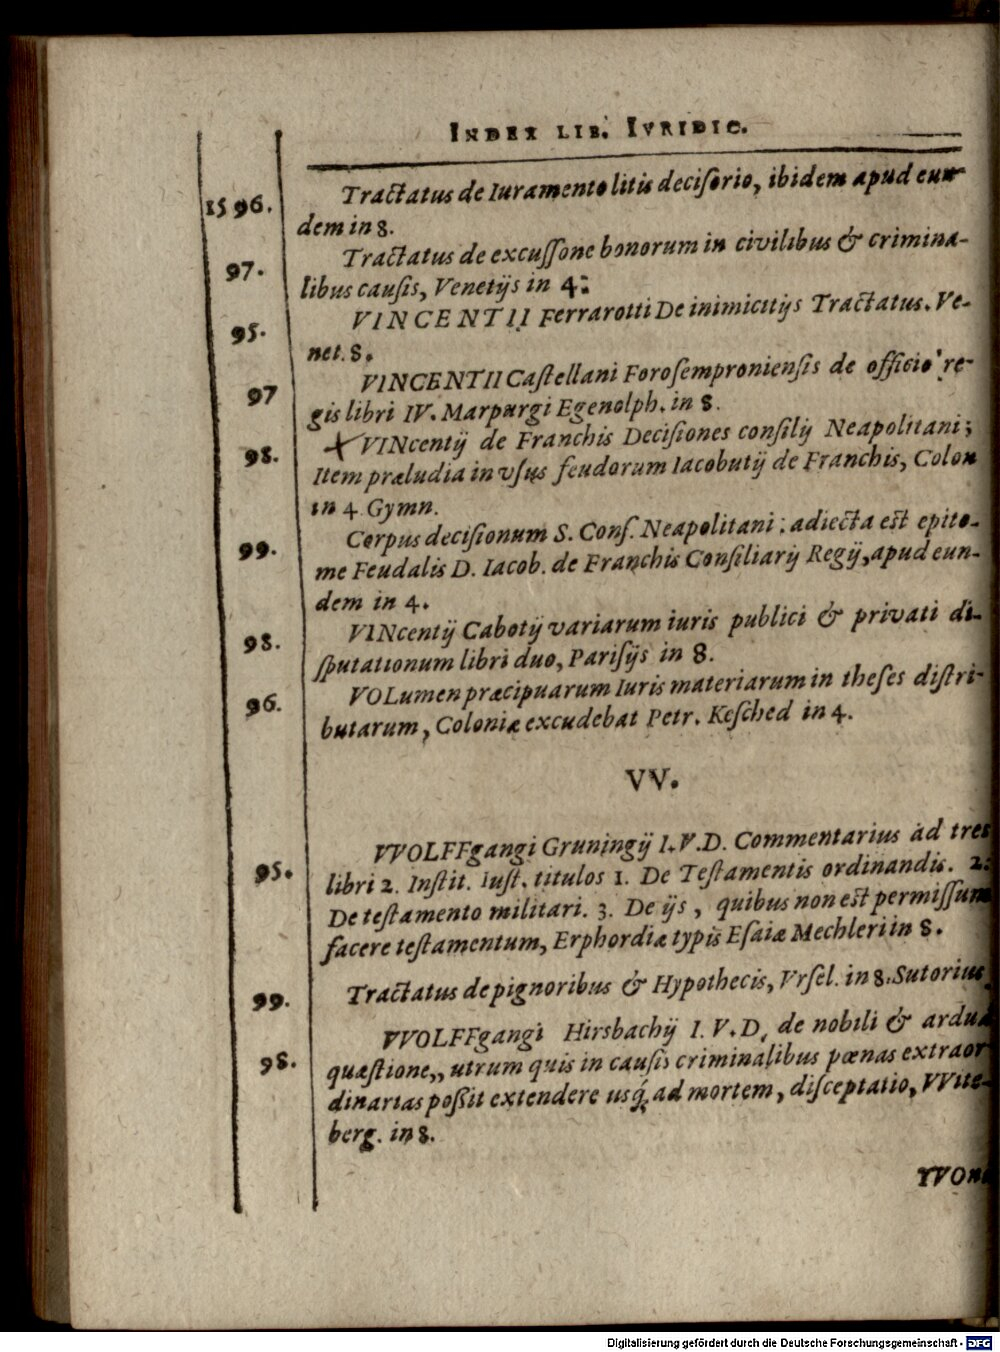 INDEX LIB. IVRIDIC.
1596. Tractatus de Iuramento litis deciſorio, ibidem apud eun-
dem in 8.
97. Tractatus de excuſſone bonorum in civilibus & crimina-
libus cauſis, Venetijs in 4.
95. VINCENTII Ferrarotti De inimicitijs Tractatus. Ve-
net. 8.
97 VINCENTII Caſtellani Foroſempronienſis de officio re-
gis libri IV. Marpurgi Egenolph. in 8.
98. VINcentij de Franchis Deciſiones conſilij Neapolitani;
Item præludia in vſus feudorum Iacobutij de Franchis, Colon
in 4 Gymn.
99. Corpus deciſionum S. Conſ. Neapolitani: adiecta est epito-
me Feudalis D. Iacob. de Franchis Conſiliarij Regij, apud eun-
dem in 4.
98. VINcentij Cabotij variarum iuris publici & privati di-
ſputationum libri duo, Pariſijs in 8.
96. VOLumen præcipuarum Iuris materiarum in theſes diſtri-
butarum, Coloniæ excudebat Petr. Keſched in 4.
VV.
95. VVOLFFgangi Gruningij I.V.D. Commentarius ad tres
libri 2. Inſtit. Iuſt. titulos 1. De Teſtamentis ordinandis. 2:
De teſtamento militari. 3. De ijs, quibus non est permiſſum
facere teſtamentum, Erphordiæ typis Eſaiæ Mechleri in 8.
99. Tractatus de pignoribus & Hypothecis, Vrſel. in 8. Sutorius
98. VVOLFFgangi Hirsbachij I. V. D, de nobili & ardua
quæſtione,, utrum quis in cauſis criminalibus pœnas extraor
dinarias poſſit extendere usq́; ad mortem, diſceptatio, VVite-
berg. in 8.
YVON